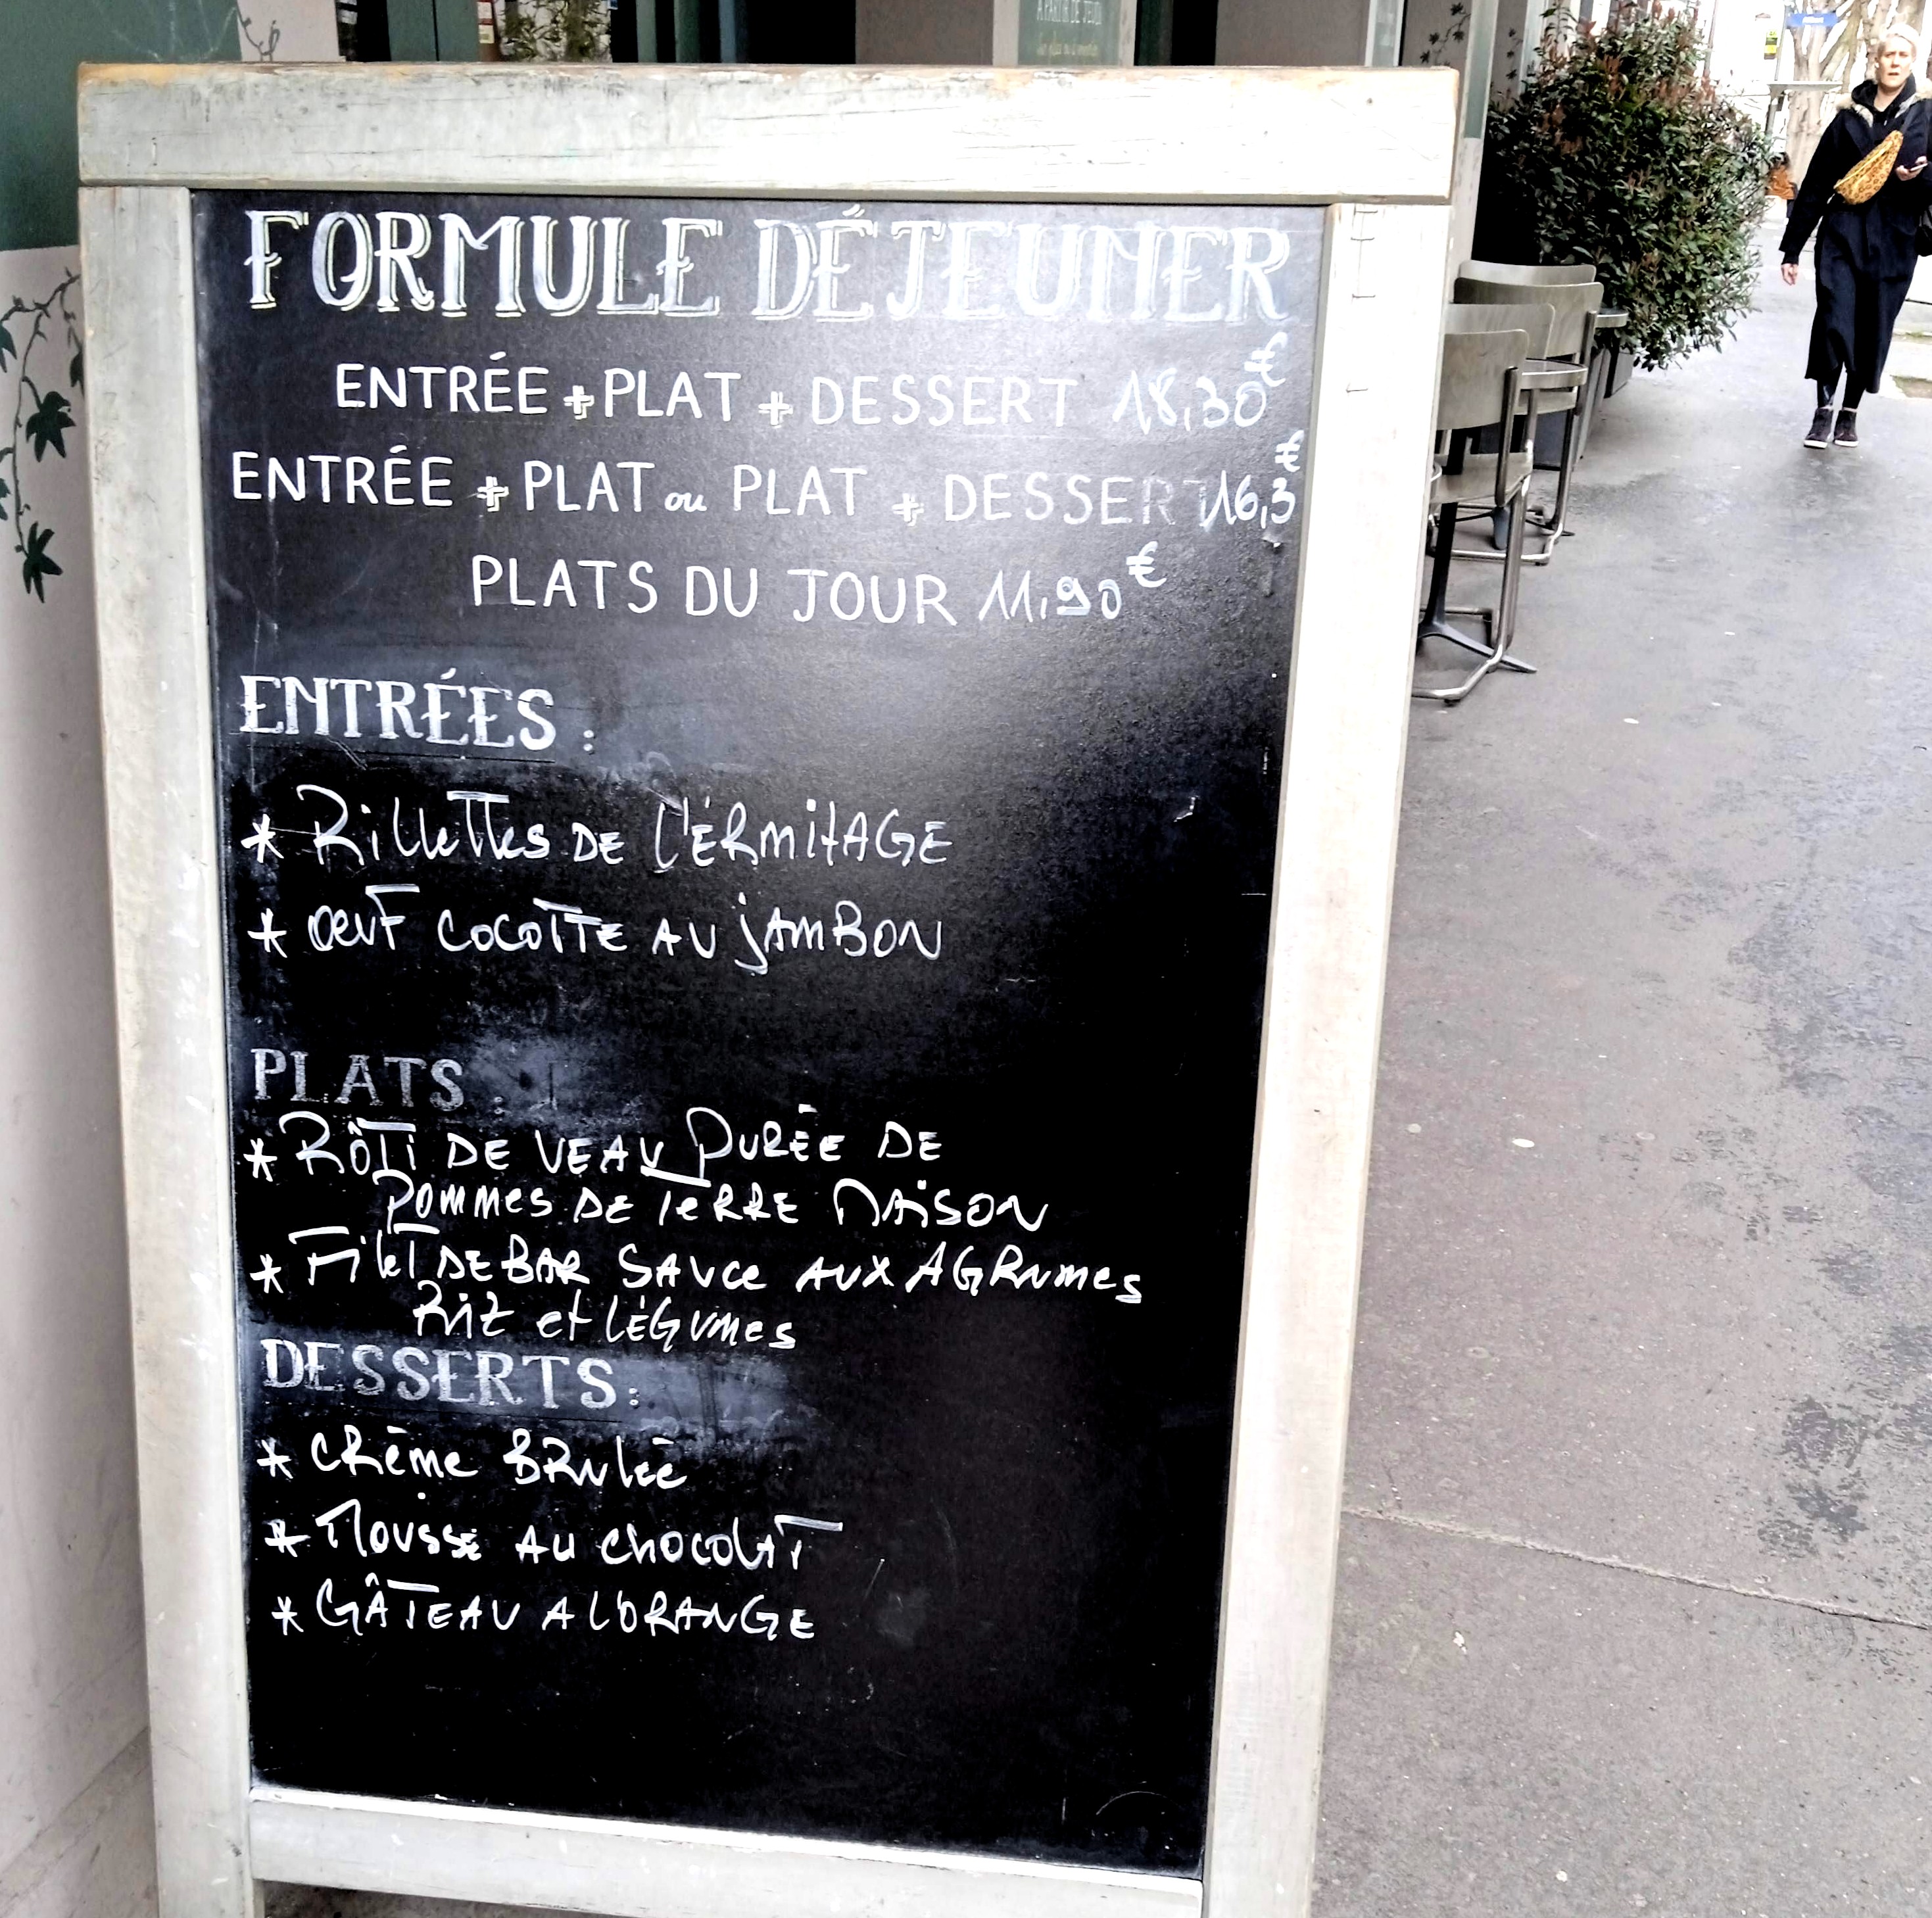 À PARTIR DE
FORMULE DÉJEUNER
ENTRÉE + PLAT + DESSERT 18,30€
ENTRÉE + PLAT ou PLAT + DESSERT 16,3€
PLATS DU JOUR 11,90€
ENTRÉES :
* Rillettes DE L'ÉRMitAGE
* œuf cocotte AU jAMBON
PLATS :
* Rôti DE VEAU Purée DE
Pommes DE Terre MAISON
* Filet DE BAR SAUce AUX AGRumes
Riz et LÉGumes
DESSERTS :
* cRème BRulée
* Mousse Au chocolAT
* GÂTEAU A L'ORANGE